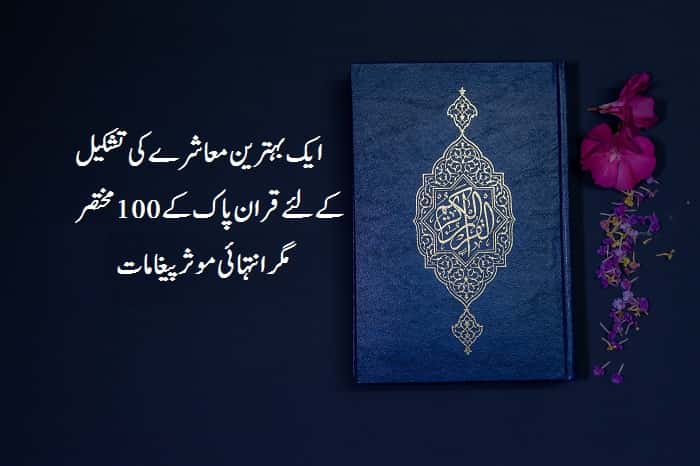 ایک بہترین معاشرے کی تشکیل
کے لئے قران پاک کے 100 مختصر
مگر انتہائی موثر پیغامات
القرآن الكريم